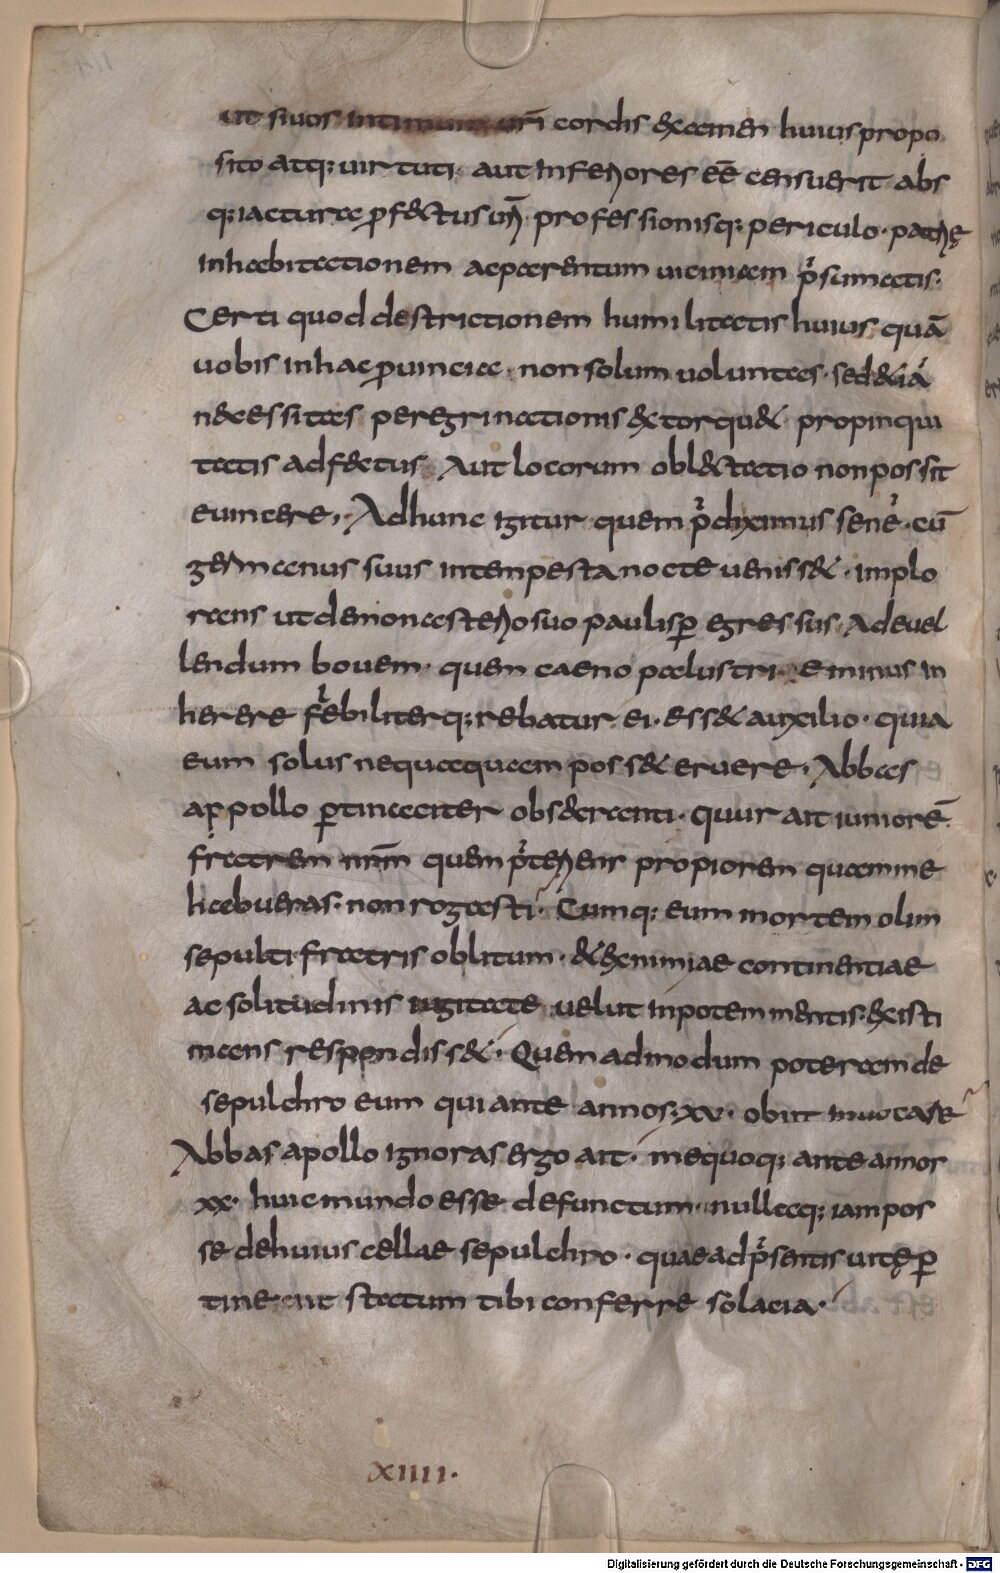 ut si uos intimum uri̅ cordis examen huius propo
sito atq; uirtuti· aut inferiores ee̅ censuerit abs
q; iacturae ꝓfectus ur̅i professionisq; periculo· patrię
inhabitationem ac parentum uiciniam p̓sumatis·
Certi quod destrictionem humilitatis huius qua̅
uobis in hac ꝓuincia· non solum uoluntas· sed &ia̅
n&essitas peregrinationis &torqu&· propinqui
tatis adfectus Aut locorum obl&tatio non possit
euincere·, Ad hunc igitur quem p̓diximus sene̅· cu̅
germanus suus intempesta nocte ueniss&· implo
rans ut de monasterio suo paulisꝑ egressus· Ad euel
lendum bouem· quem caeno palustri· eminus in
herere fl̓ebiliterq; rebatur ei· ess& auxilio· quia
eum solus nequaquam poss& eruere· Abbas
appollo ꝑtinaciter obsecranti· Quur ait iuniore̅
fratrem nr̅m quem p̓teriens propiorem quam me
habueras· non rogasti· Cumq; eum mortem olim
sepulti fratris oblitum· & ex nimiae continentiae
ac solitudinis iugitate uelut inpotem mentis· existi
mans respondiss&· Quem ad modum poteram de
sepulchro eum qui ante annos·xv· obiit inuocare
Abbas apollo ignoras ergo ait· me quoq; ante annos
xx· huic mundo esse defunctum· nullaq; iam pos
se de huius cellae sepulchro· quae ad p̓sentis uitę ꝑ
tineant statum tibi conferre solacia·
XIIII·
Digitalisierung gefördert durch die Deutsche Forschungsgemeinschaft - DFG